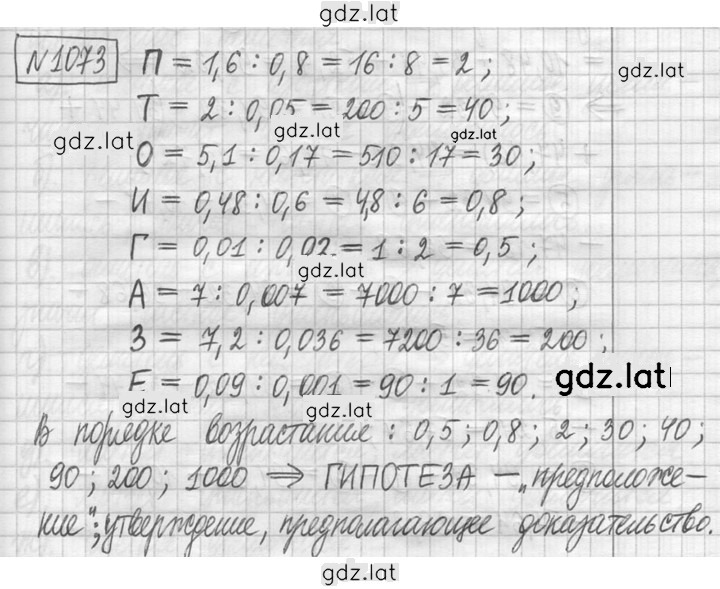 gdz.lat
№1073 П = 1,6 : 0,8 = 16 : 8 = 2 ;
gdz.lat
Т = 2 : 0,05 = 200 : 5 = 40 ;
gdz.lat gdz.lat gdz.lat
О = 5,1 : 0,17 = 510 : 17 = 30 ;
И = 0,48 : 0,6 = 4,8 : 6 = 0,8 ;
Г = 0,01 : 0,02 = 1 : 2 = 0,5 ;
gdz.lat
А = 7 : 0,007 = 7000 : 7 = 1000 ;
З = 7,2 : 0,036 = 7200 : 36 = 200 ;
Е = 0,09 : 0,001 = 90 : 1 = 90.
gdz.lat
gdz.lat gdz.lat
В порядке возрастание : 0,5 ; 0,8 ; 2 ; 30 ; 40 ;
90 ; 200 ; 1000 ⇒ ГИПОТЕЗА – „предположе-
ние"; утверждение, предполагающее доказательство.
gdz.lat